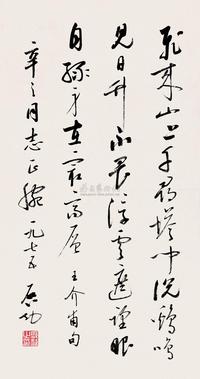 飛來山上千尋塔聞說鷄鳴
見日升不畏浮雲遮望眼
自緣身在最高層 王介甫句
辛之同志正腕 一九七五 啟功